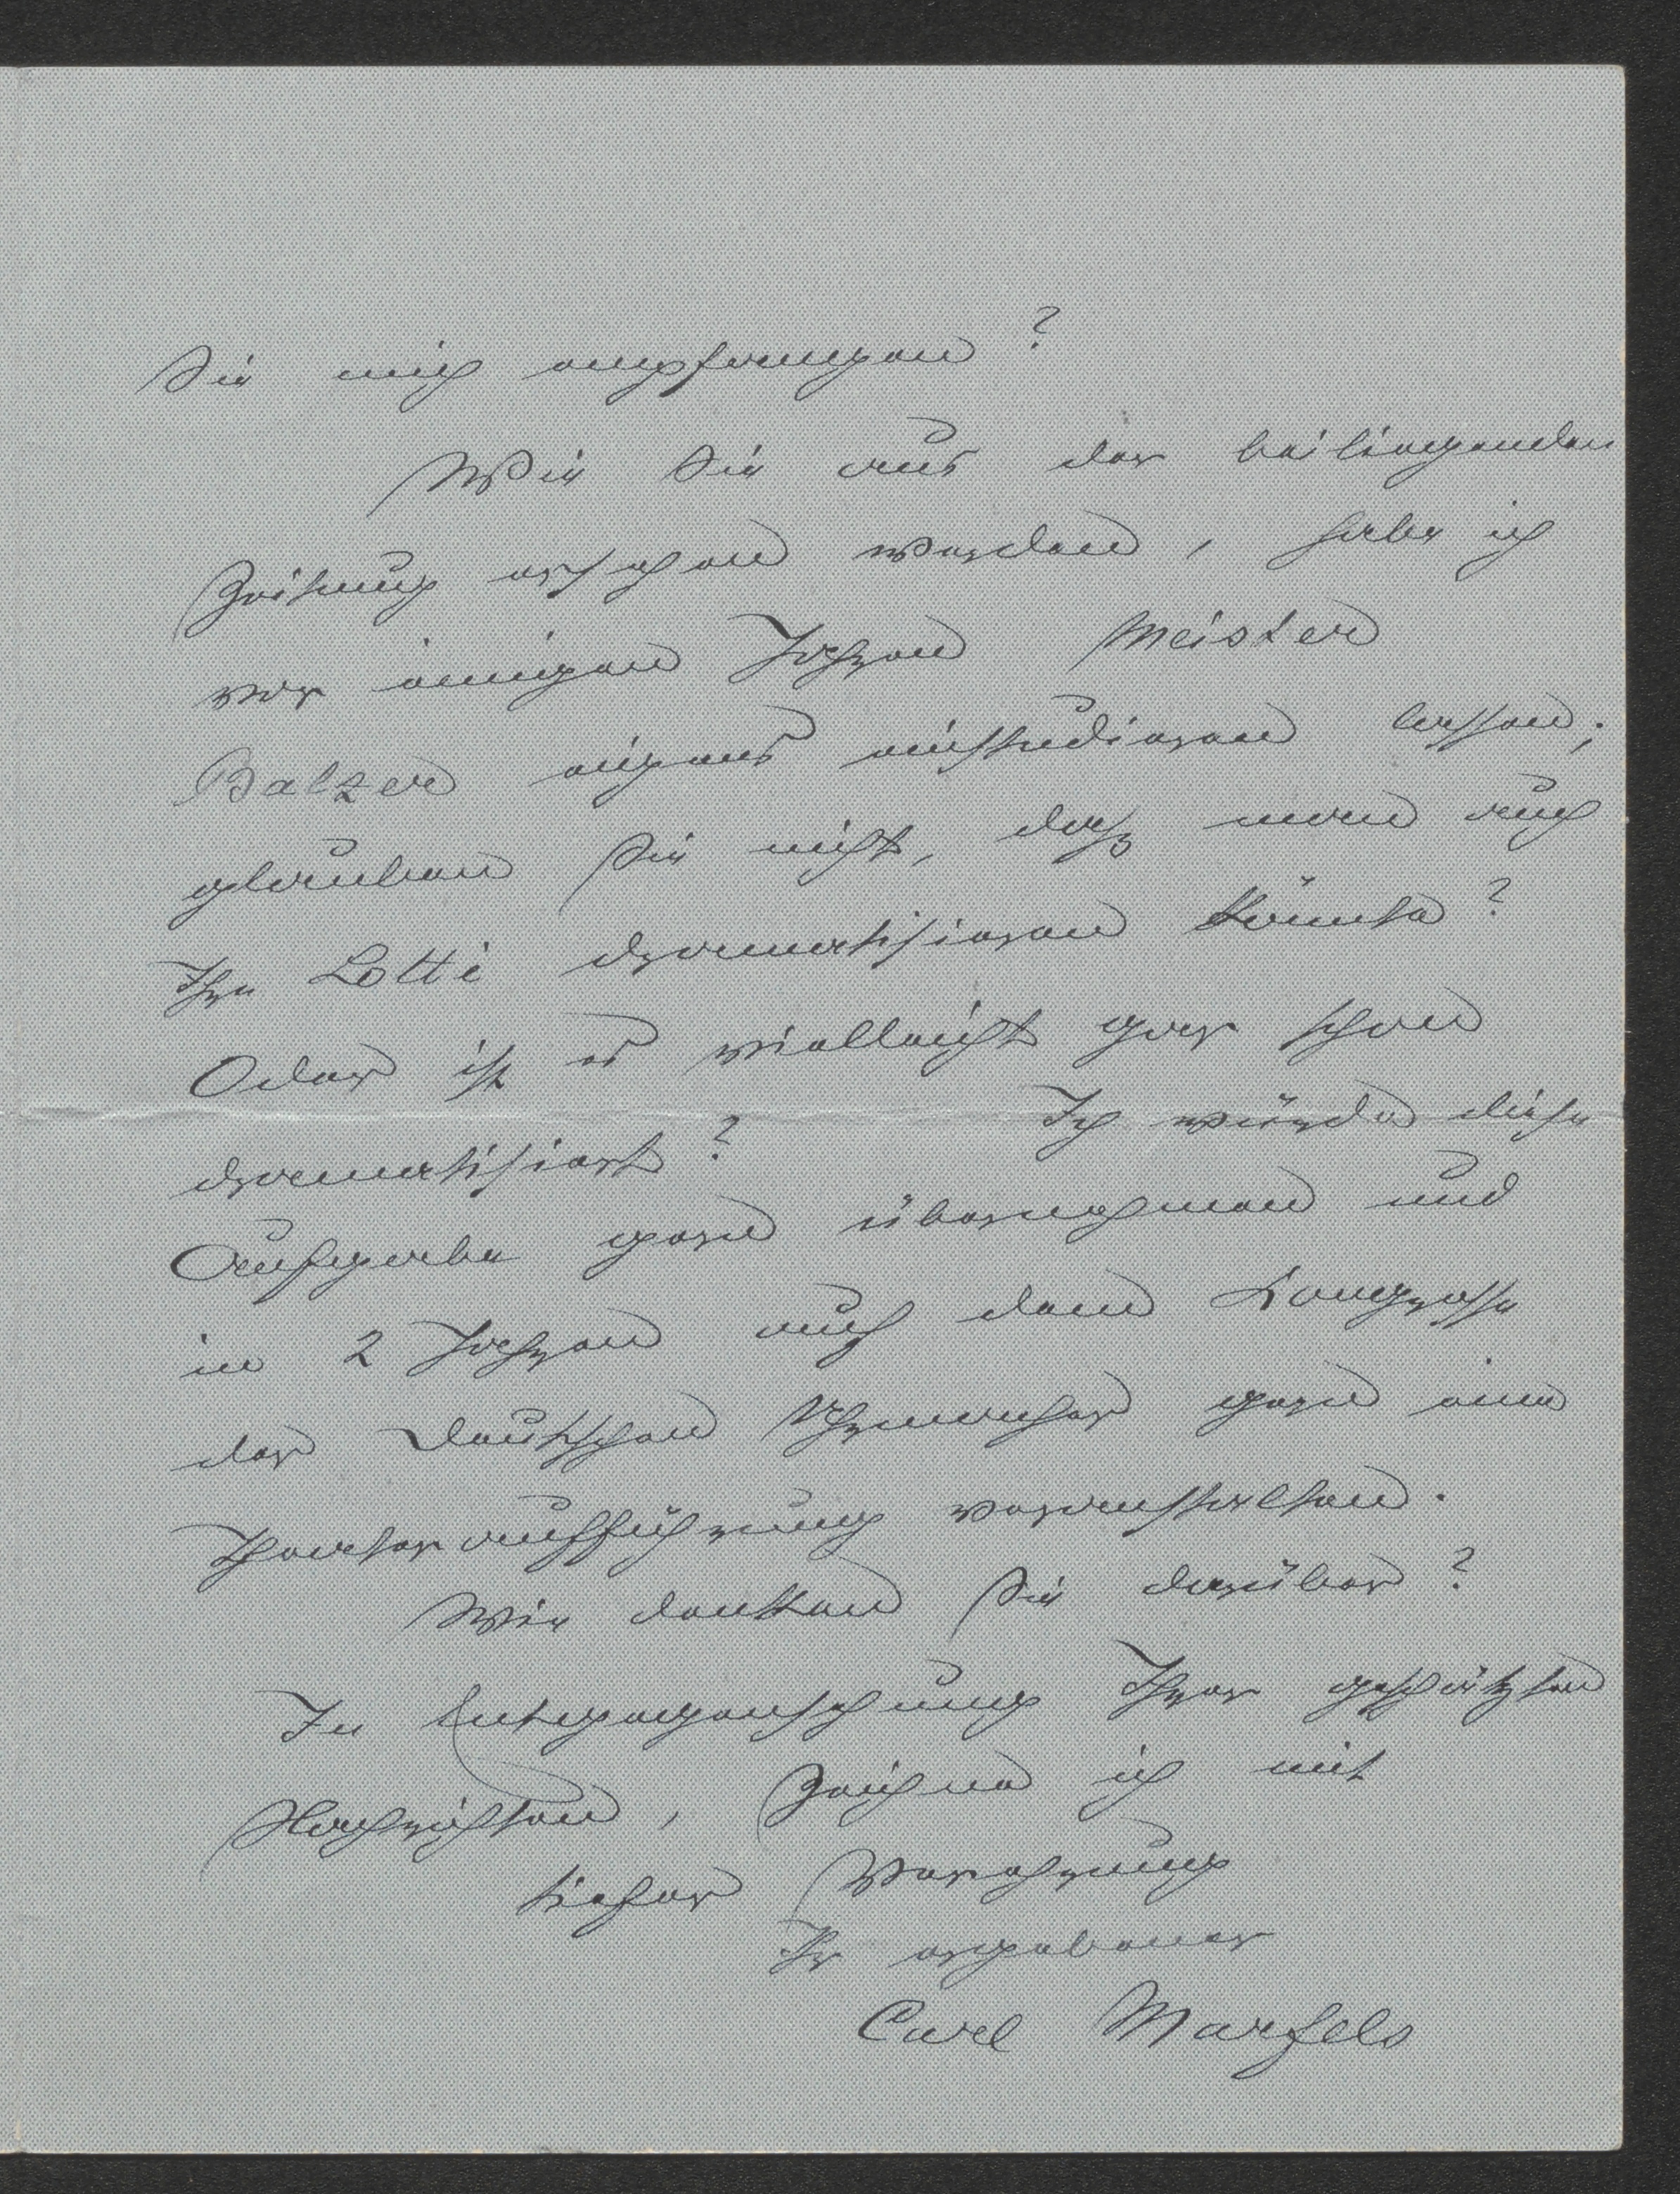 Sie mich empfangen?
Wie Sie aus der beiliegenden
Zeitung ersehen werden, habe ich
vor einigen Jahren Meister
Balzer eigens einstudieren lassen;
glauben Sie nicht, daß man auch
Ihre Lotti dramatisieren könnte?
Oder ist es vielleicht gar schon
dramatisiert? Ich würde diese
Aufgabe gern übernehmen und
in 2 Jahren auch dem Kongresse
der Deutschen Uhrmacher gern eine
Theateraufführung veranstalten.
Wie denken Sie darüber?
In Entgegensehung Ihrer geschätzten
Nachrichten, zeichne ich mit
tiefer Verehrung
Ihr ergebener
Carl Marfels